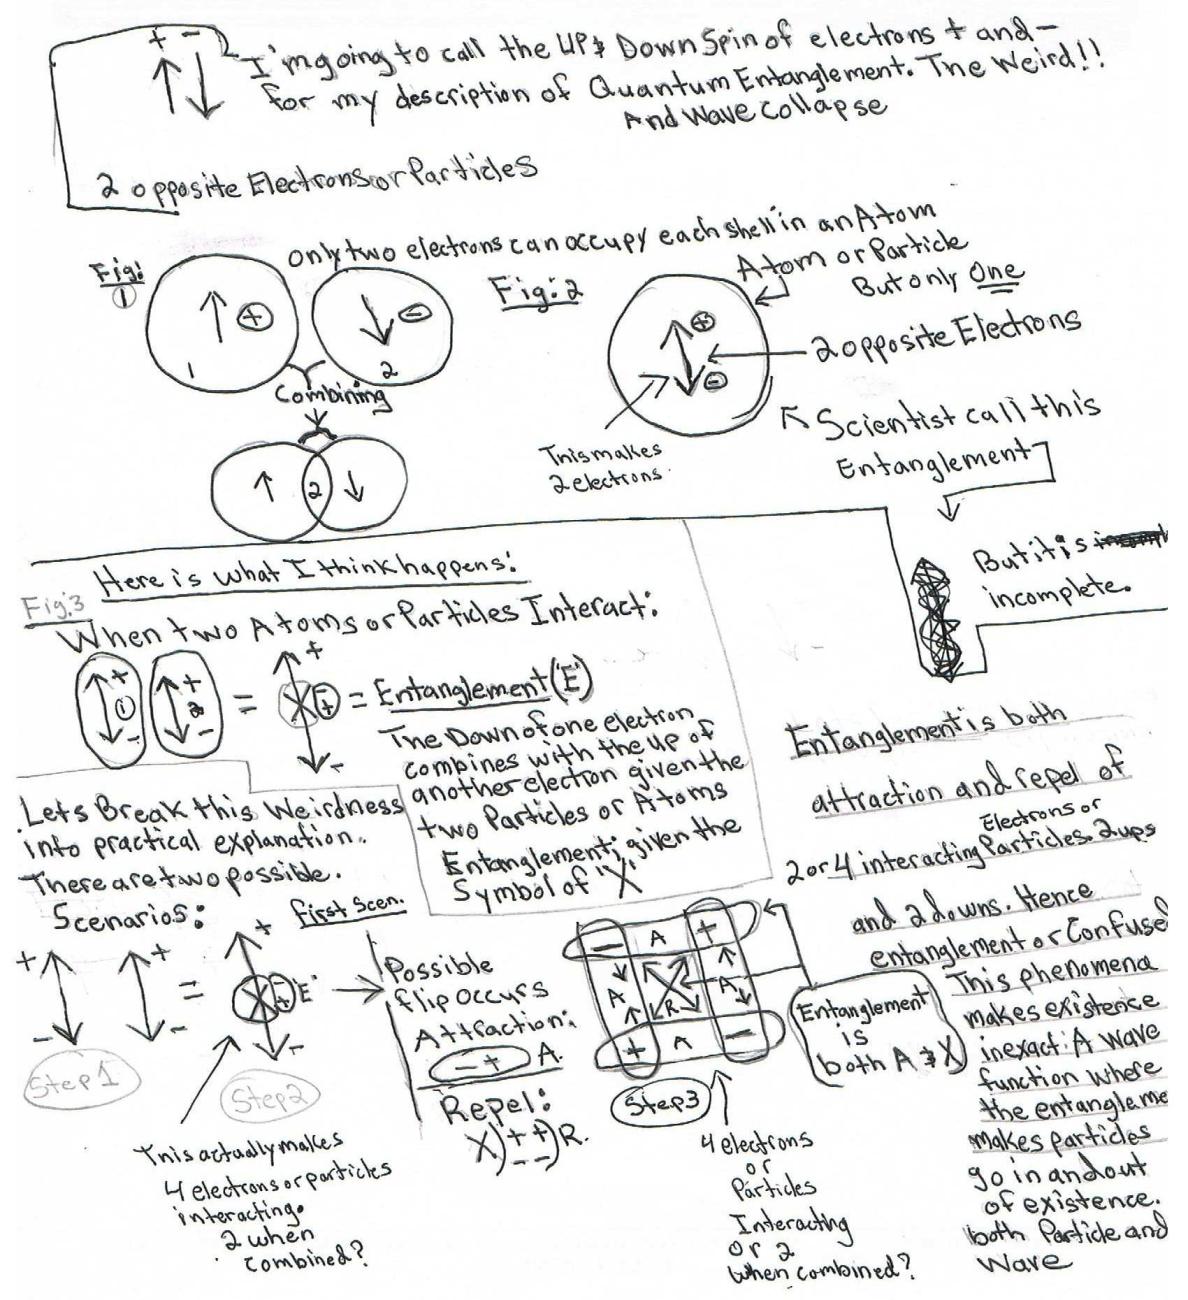 + -
I'm going to call the UP & Down Spin of electrons + and -
for my description of Quantum Entanglement. The Weird!!
And Wave collapse
2 opposite Electrons or Particles
only two electrons can occupy each shell in an Atom
Fig: 1
+
1
-
2
Combining
2
Fig: 2
Atom or Particle
But only One
+
-
2 opposite Electrons
This makes
2 electrons.
Scientist call this
Entanglement
But it is
incomplete.
Here is what I think happens:
Fig: 3
When two Atoms or Particles Interact:
+ 1 - + 2 - = + X E + - = Entanglement (E)
The Down of one electron
combines with the up of
another electron given the
two Particles or Atoms
Entanglement; given the
Symbol of "X"
Lets Break this Weirdness
into practical explanation.
There are two possible.
Scenarios:
First Scen.
+ - + - = + X E -
Step 1
Step 2
This actually makes
4 electrons or particles
interacting.
2 when
combined?
Possible
flip occurs
Attraction:
- + A.
Repel:
X) + + - - ) R.
- A +
A R A
+ A -
Step 3
4 electrons
or
Particles
Interacting
or 2
when combined?
Entanglement
is
both A & X
Entanglement is both
attraction and repel of
Electrons or
2 or 4 interacting Particles. 2 ups
and 2 downs. Hence
entanglement or Confuse
This phenomena
makes existence
inexact. A wave
function where
the entangleme
makes particles
go in and out
of existence.
both Particle and
Wave